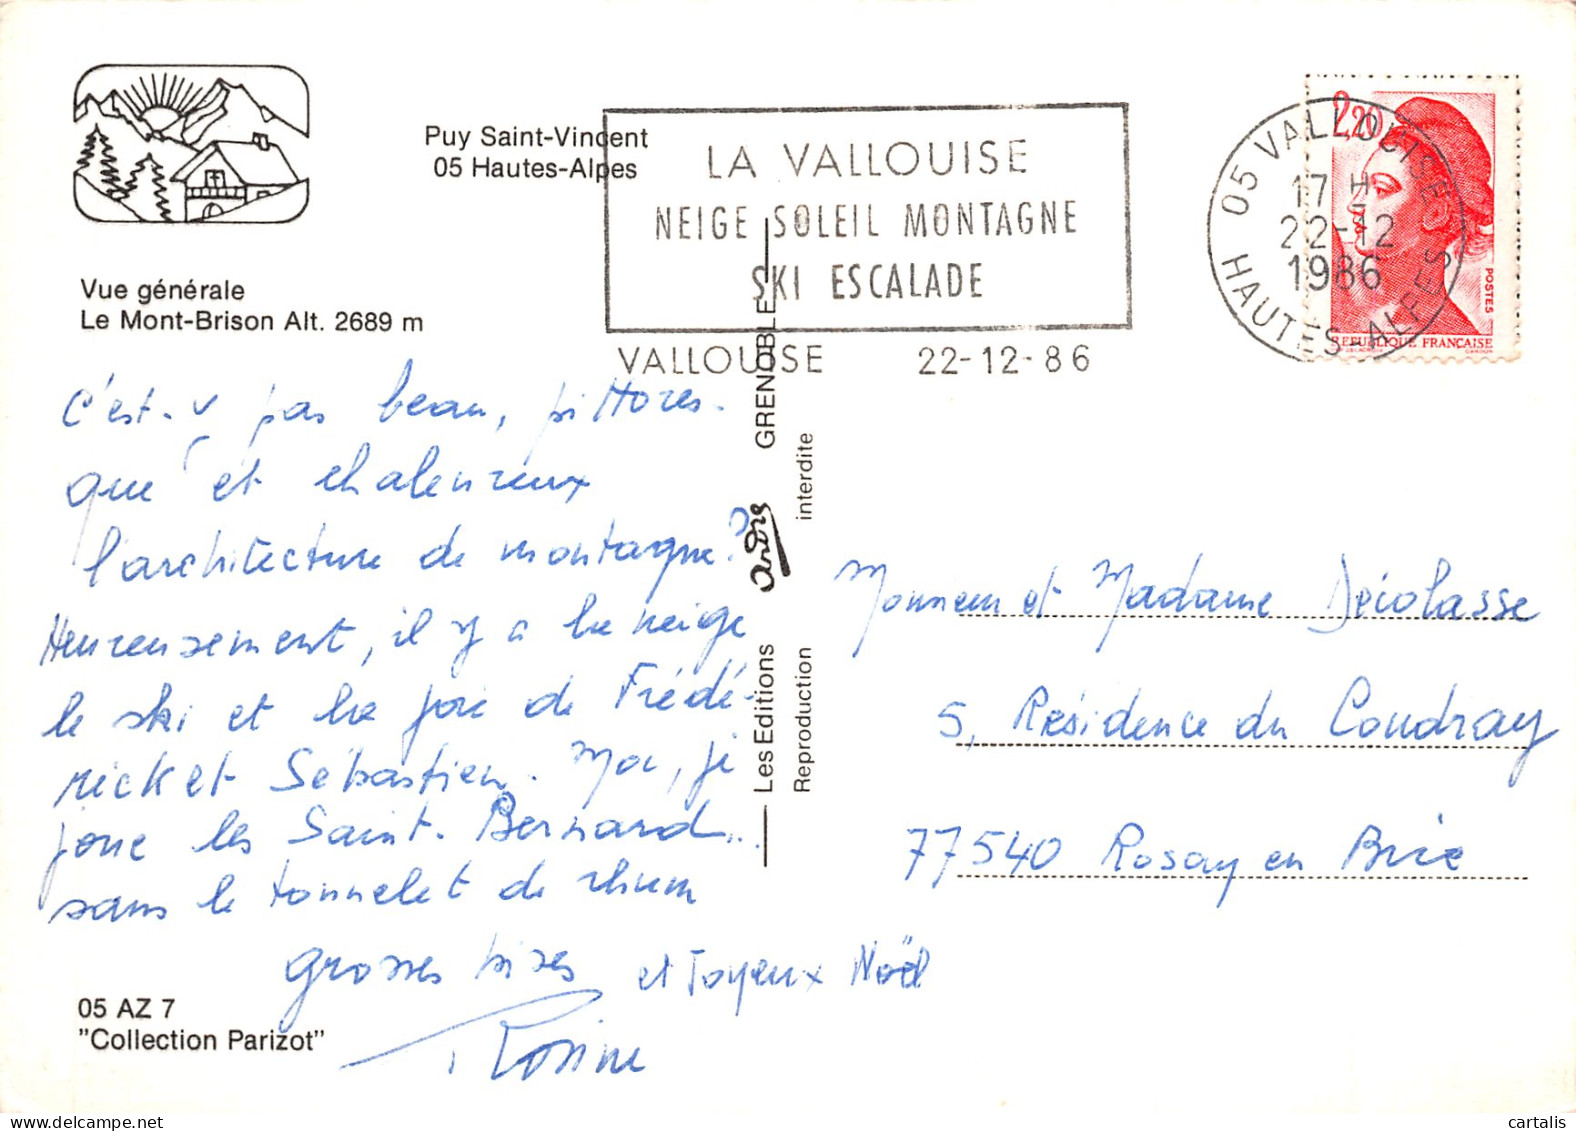 Puy Saint-Vincent
05 Hautes-Alpes
LA VALLOUISE
NEIGE SOLEIL MONTAGNE
SKI ESCALADE
VALLOUISE 22-12-86
05 VALLOUISE
17 H
22-12
1986
HAUTES-ALPES
2,20
POSTES
REPUBLIQUE FRANÇAISE
Vue générale
Le Mont-Brison Alt. 2689 m
C'est-y pas beau, pittores-
que et chaleureux
l'architecture de montagne?
Heureusement, il y a la neige
le ski et la joie de Frédé-
rick et Sébastien. Moi, je
joue les Saint-Bernard...
sans le tonnelet de rhum
grosses bises et Joyeux Noël
Rosine
05 AZ 7
"Collection Parizot"
Les Editions andré GRENOBLE
Reproduction interdite
Monsieur et Madame Décolasse
5, Résidence du Coudray
77540 Rosay en Brie
cartalis